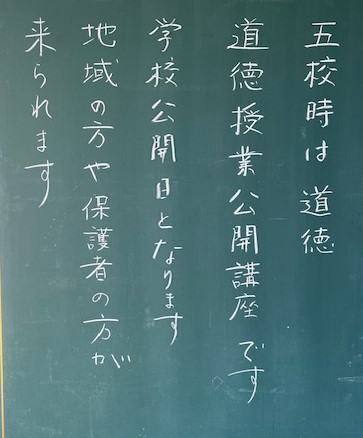 五校時は道徳
道徳授業公開講座です
学校公開日となります
地域の方や保護者の方が
来られます